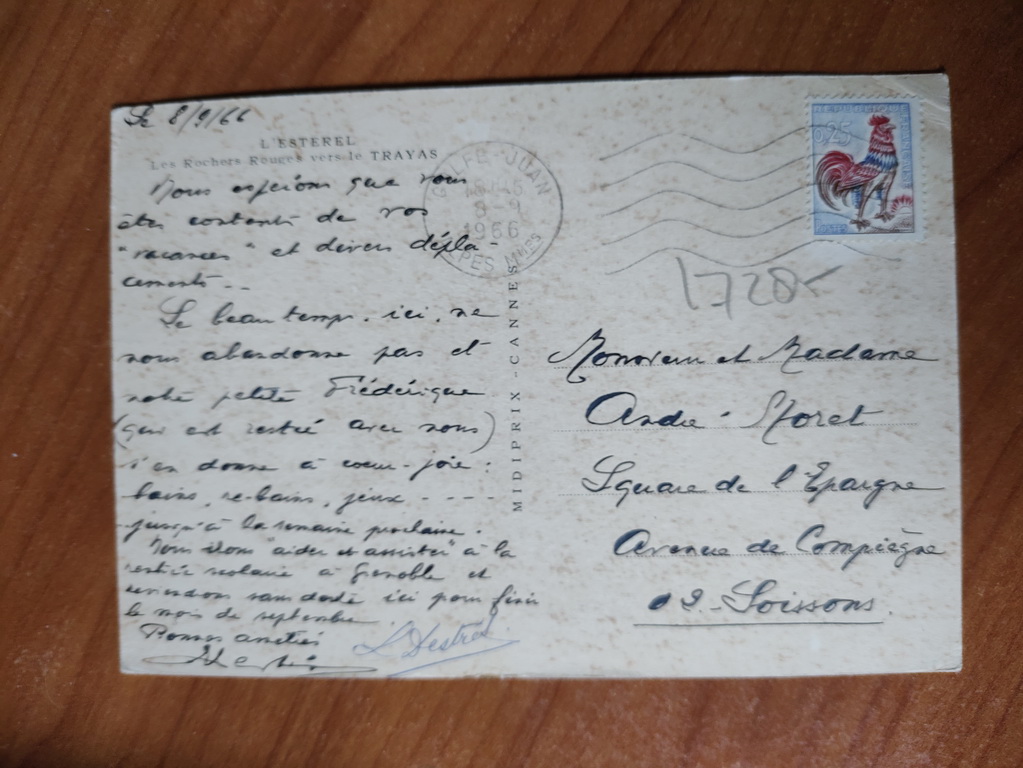 Le 8/9/66
L'ESTEREL
Les Rochers Rouges vers le TRAYAS
Nous espérons que vous
êtes contents de vos
"vacances" et divers dépla-
cements..
Le beau temps, ici, ne
nous abandonne pas et
notre petite Frédérique
(qui est restée avec nous)
s'en donne à coeur-joie:
bains, re-bains, jeux ----
jusqu'à la semaine prochaine.
Nous irons "aider et assister" à la
rentrée scolaire à Grenoble et
reviendrons sans doute ici pour finir
le mois de septembre.
Bonnes amitiés
L Destrée
MIDIPRIX - CANNES
GOLFE-JUAN
1966
ALPES MMES
0,25
POSTES
1720-
Monsieur et Madame
André Floret
Square de l'Epargne
Avenue de Compiègne
02-Soissons.